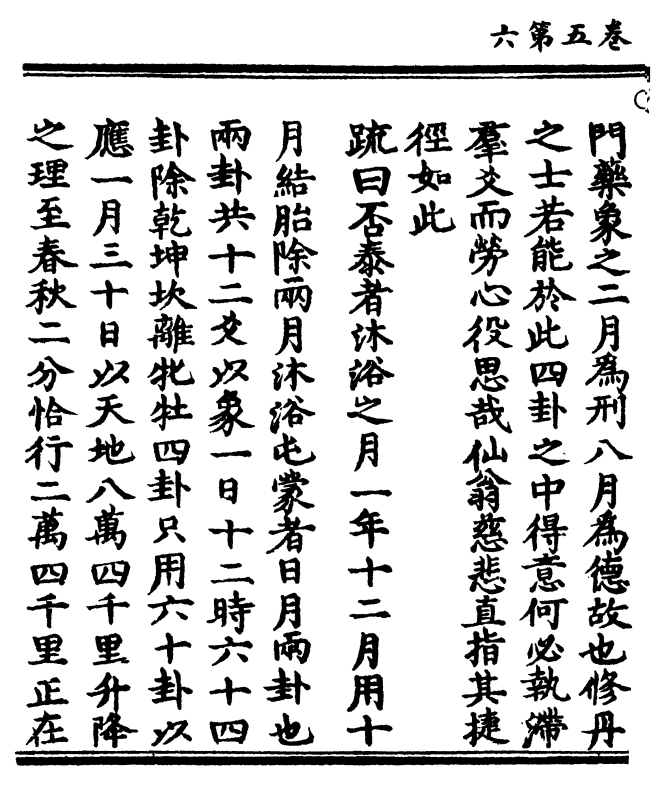 卷五第六
門藥象之二月為刑八月為德故也修丹
之士若能於此四卦之中得意何必執滯
羣爻而勞心役思哉仙翁慈悲直指其捷
徑如此
疏曰否泰者沐浴之月一年十二月用十
月結胎除兩月沐浴屯蒙者日月兩卦也
兩卦共十二爻以象一日十二時六十四
卦除乾坤坎離牝牡四卦只用六十卦以
應一月三十日以天地八萬四千里升降
之理至春秋二分恰行二萬四千里正在